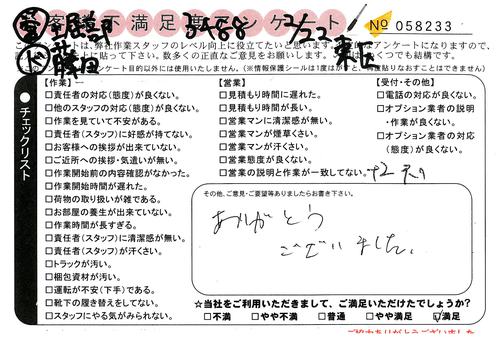 お客様不満足度アンケート
№ 058233
3488
2/22
東区
藤田
このアンケートは、弊社作業スタッフのレベル向上に役立てたいと思います。
下さい。数多くの正直なご意見をお願いします。
このアンケート目的以外には使用いたしません。(※情報保護シールは1度はがすと、再度貼りなおすことはできません)
チェックリスト
【作業】
□責任者の対応(態度)が良くない。
□他のスタッフの対応(態度)が良くない。
□作業を見ていて不安がある。
□責任者(スタッフ)に好感が持てない。
□お客様への挨拶が出来ていない。
□ご近所への挨拶・気遣いが無い。
□作業開始前の内容確認がなかった。
□作業開始時間が遅れた。
□荷物の取り扱いが雑である。
□お部屋の養生が出来ていない。
□作業時間が長すぎる。
□責任者(スタッフ)に清潔感が無い。
□責任者(スタッフ)が汗くさい。
□トラックが汚い。
□梱包資材が汚い。
□運転が不安(下手)である。
□靴下の履き替えをしてない。
□スタッフにやる気がみられない。
【営業】
□見積もり時間に遅れた。
□見積もり時間が長い。
□営業マンに清潔感が無い。
□営業マンが煙草くさい。
□営業マンが汗くさい。
□営業態度が良くない。
□営業の説明と作業が一致してない。
【受付・その他】
□電話の対応が良くない。
□オプション業者の説明
・作業が良くない。
□オプション業者の対応
(態度)が良くない。
その他、ご意見・ご要望等ありましたらお書き下さい。
ありがとう
ございました。
☆当社をご利用いただきまして、ご満足いただけたでしょうか?
□不満 □やや不満 □普通 □やや満足 ☑満足
ご協力ありがとうございました